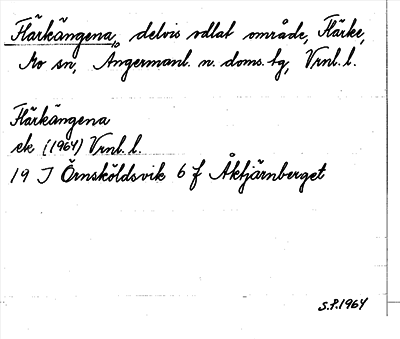 Flärkängena, delvis odlat område, Flärke,
Mo sn, Ångermanl. n. doms. tg, Vrnl. l.
Flärkängena
ek (1964) Vrnl. l.
19 J Örnsköldsvik 6 f Åktjärnberget
S.P. 1964